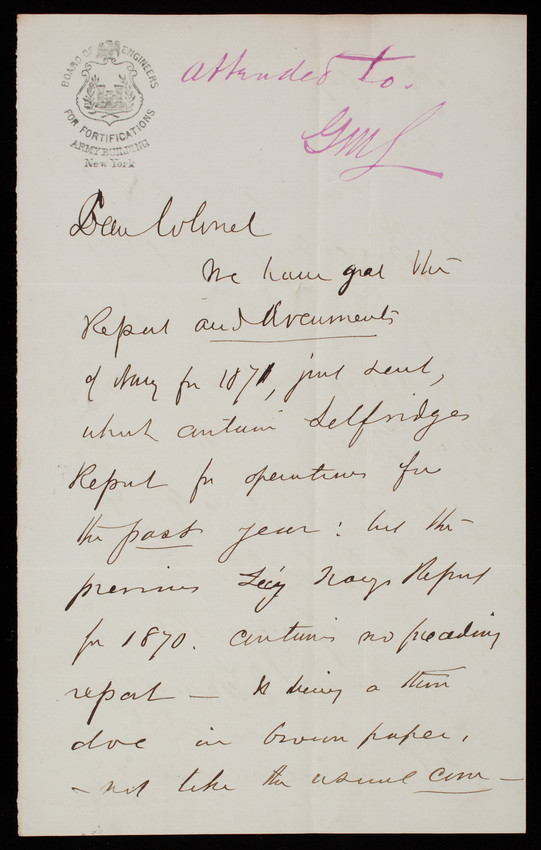 BOARD OF ENGINEERS
FOR FORTIFICATIONS
ARMY BUILDING
New York
Attended to.
GML
Dear Colonel
We have got the
Report and Documents
of Navy for 1871, just sent,
which contain Selfridges
Report for operations for
the past year: but the
previous Secy Navys Report
for 1870. contains no preceding
report — It being a thin
doc in brown paper,
- not like the usual com-